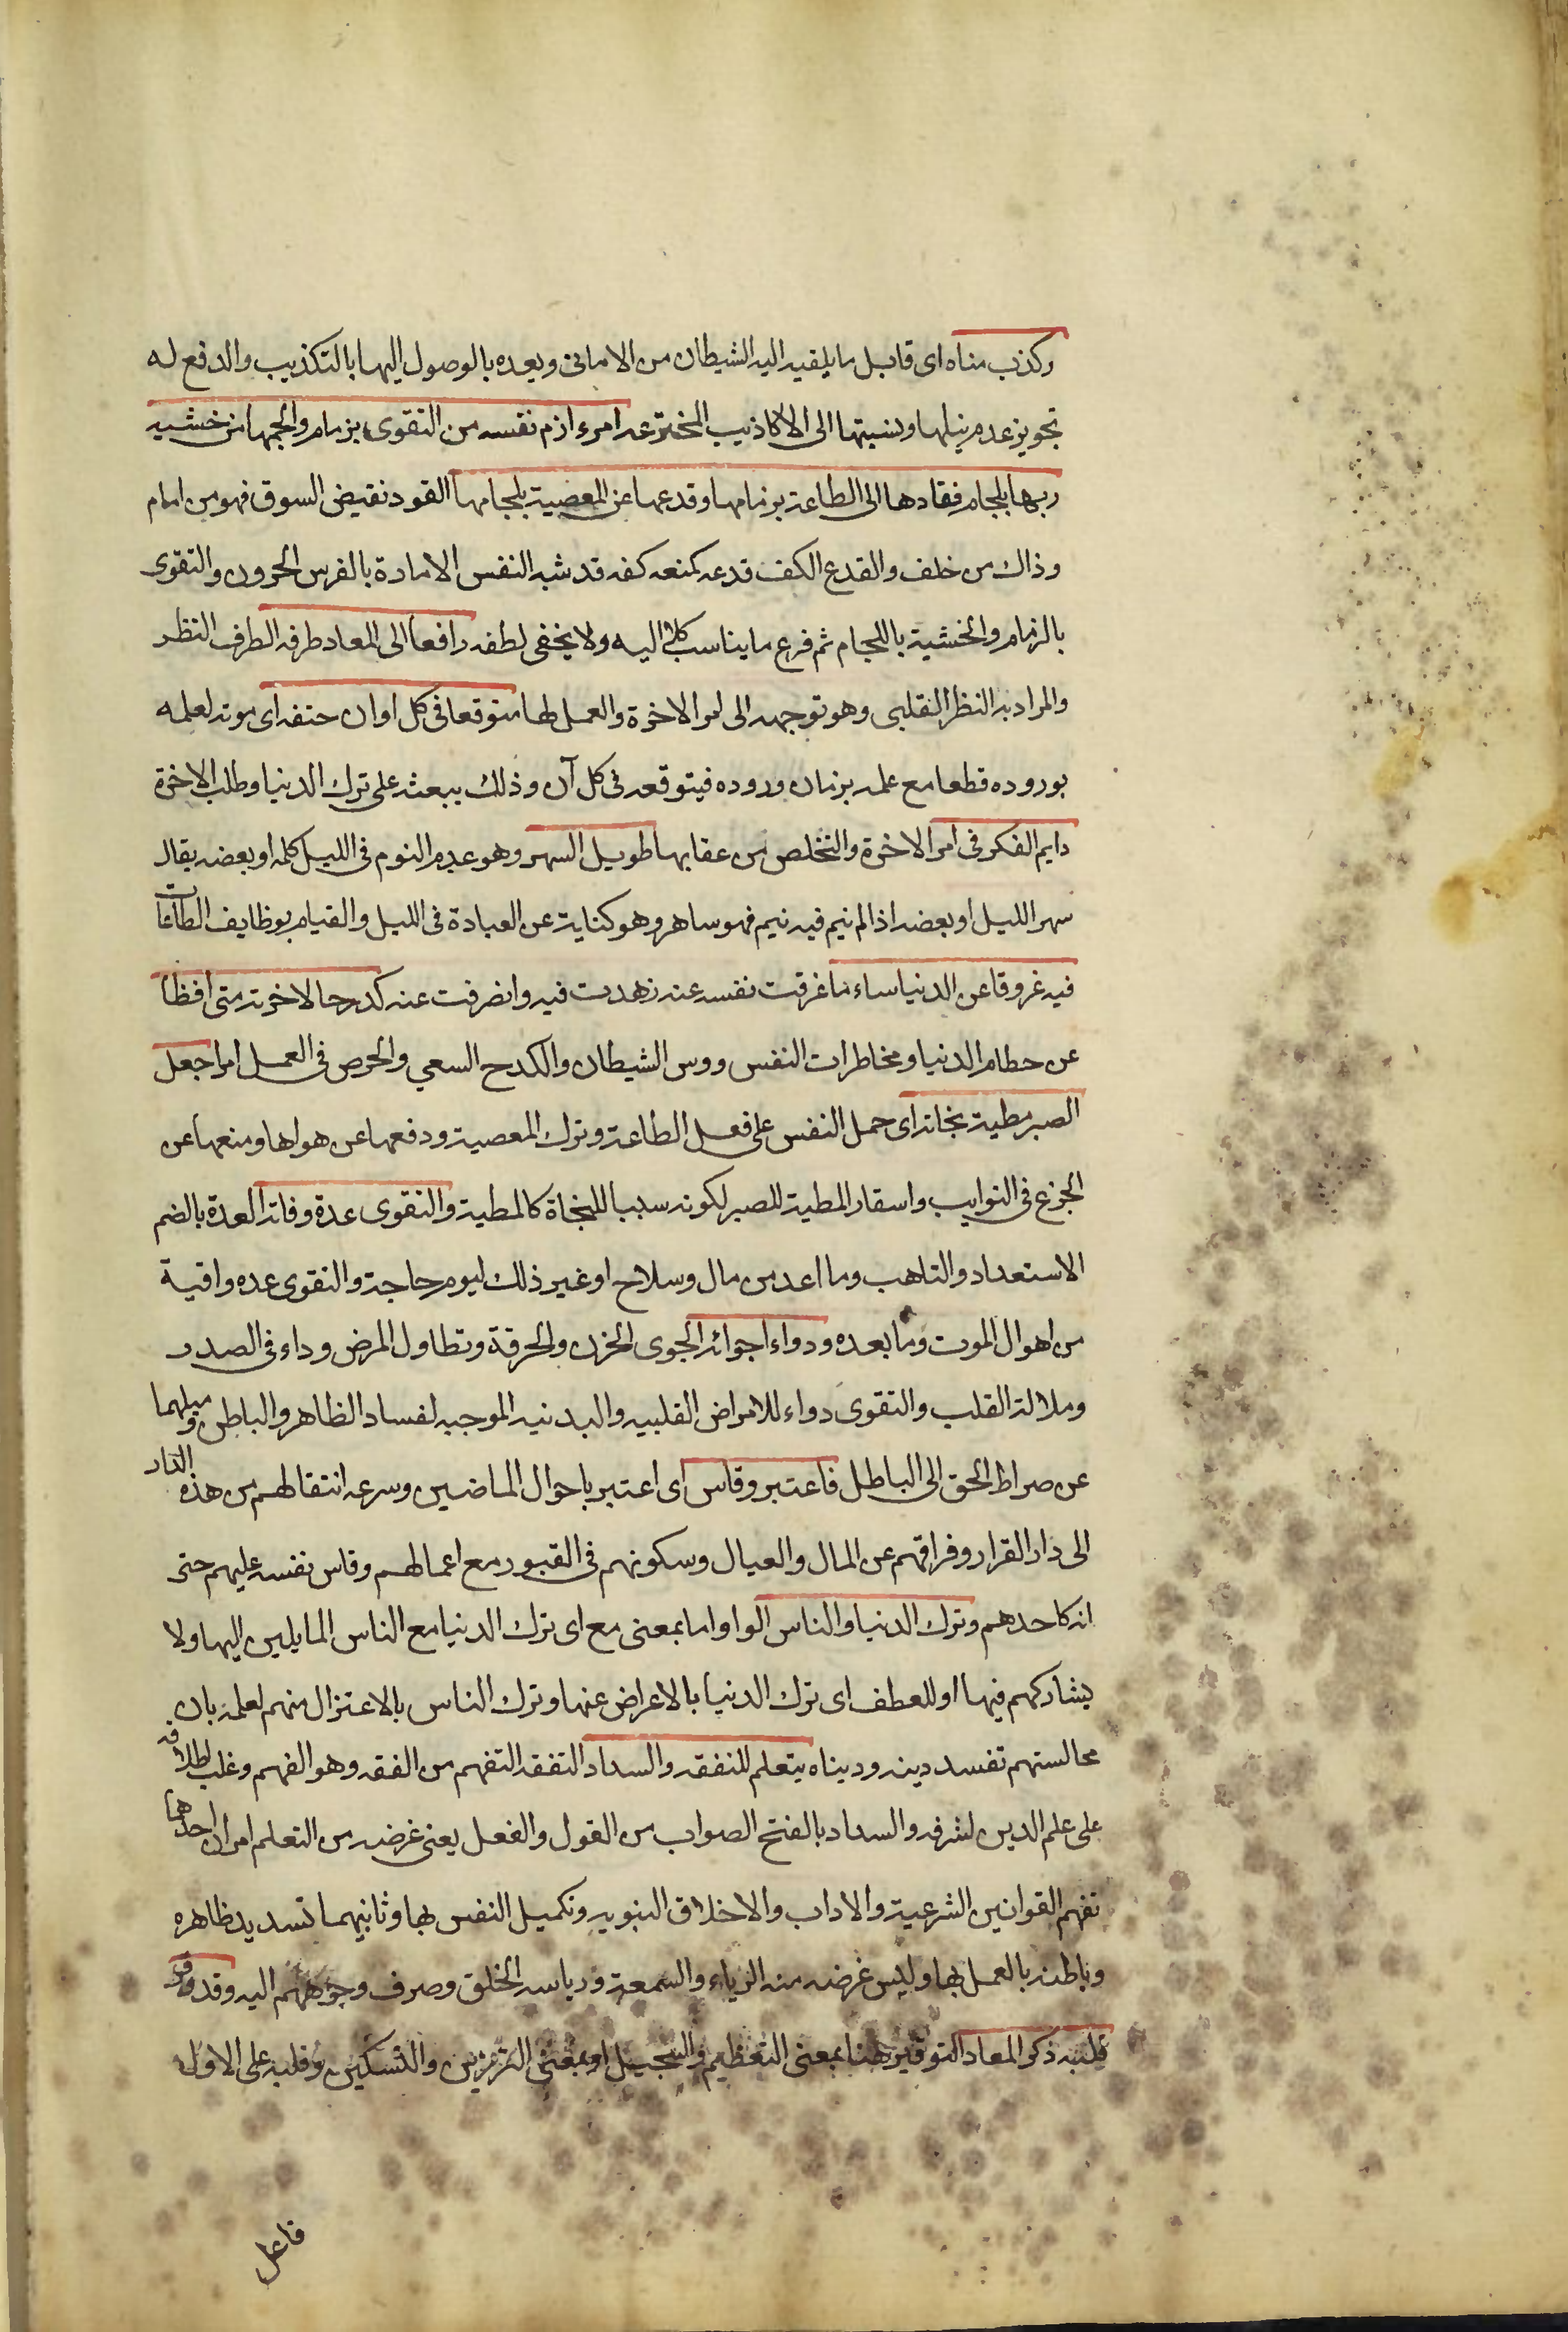 وكذب مناه اى قابل ما يلقيه اليه الشيطان من الامانى ويعده بالوصول اليها بالتكذيب والدفع له
تجويز عدم نيلها ونسبتها الى الاكاذيب المخترعه امرء ازم نفسه من التقوى بزمام والجمها من خشيه
ربها بلجام فقادها الى الطاعة بزمامها وقدعها عن المعصية بلجامها القود نقيض السوق فهو من امام
وذاك من خلف والقدع الكف قدعه كمنعه كفه قد شبه النفس الامارة بالفرس الحرون والتقوى
بالزمام والخشية باللجام ثم فرع ما يناسب كلا اليه ولا يخفى لطفه رافعا الى المعاد طرفه الطرف النظر
والمراد به النظر القلبى وهو توجهه الى امر الاخرة والعمل لها متوقعا فى كل اوان حتفه اى موته لعلمه
بوروده قطعا مع علمه بزمان وروده فيتوقعه فى كل آن وذلك يبعثه على ترك الدنيا وطلب الاخرة
دايم الفكر فى امر الاخرة والتخلص من عقابها طويل السهر وهو عدم النوم فى الليل كله او بعضه يقال
سهر الليل او بعضه اذا لم ينم فيه نيم فهو ساهر وهو كناية عن العبادة فى الليل والقيام بوظايف الطاعات
فيه عزوقا عن الدنيا ساء ما عزقت نفسه عنه زهدت فيه وانصرفت عنه كدحا لاخرته متحافظا
عن حطام الدنيا ومخاطرات النفس ووس الشيطان والكدح السعي والحرص فى العمل امرا جعل
الصبر مطية نجاته اى حمل النفس على فعل الطاعة وترك المعصية ودفعها عن هواها ومنعها عن
الجزع فى النوايب واستعار المطية للصبر لكونه سببا للنجاة كالمطية والتقوى عدة وفاته العدة بالضم
الاستعداد والتاهب وما اعد من مال وسلاح او غير ذلك ليوم حاجة والتقوى عده واقية
من اهوال الموت وما بعده ودواء اجوائه الجوى الحزن والحرقة وتطاول المرض وداء فى الصدر
وملالة القلب والتقوى دواء للامراض القلبيه والبدنيه الموجبه لفساد الظاهر والباطن وميلهما
عن صراط الحق الى الباطل فاعتبر وقاس اى اعتبر باحوال الماضين وسرعه انتقالهم من هذه الدار
الى دار القرار وفراقهم عن المال والعيال وسكونهم فى القبور مع اعمالهم وقاس نفسه عليهم حتى
انه كاحدهم وترك الدنيا والناس الواو اما بمعنى مع اى ترك الدنيا مع الناس المايلين اليها ولا
يشاركهم فيها او للعطف اى ترك الدنيا بالاعراض عنها وترك الناس بالاعتزال منهم لعلمه بان
مجالستهم تفسد دينه ودنياه يتعلم للتفقه والسداد التفقه التفهم من الفقه وهو الفهم وغلب اطلاقه
على علم الدين لشرفه والسداد بالفتح الصواب من القول والفعل يعنى غرضه من التعلم امران احدهما
تفهم القوانين الشرعية والاداب والاخلاق النبويه وتكميل النفس بها وثانيهما تسديد ظاهره
وباطنه بالعمل بها وليس غرضه منه الرياء والسمعة ورياسه الخلق وصرف وجوههم اليه وقد وقر
قلبه ذكر المعاد التوقير هنا بمعنى التعظيم والتبجيل او بمعنى الترزين والتسكين وقلبه على الاول
فاعل